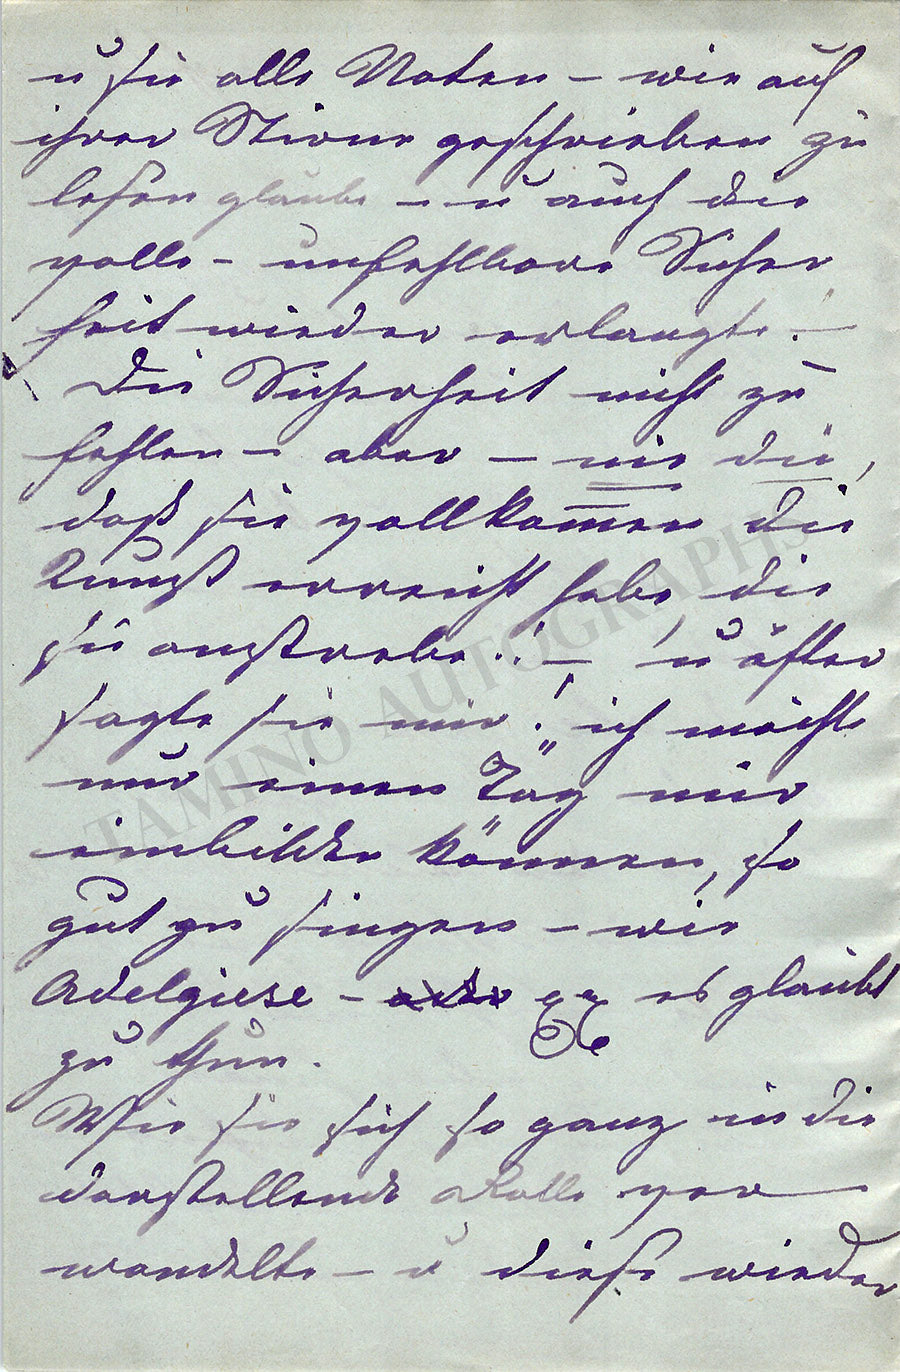 u sie alle Noten – wie auf
ihrer Stirne geschrieben zu
lesen glaubt – u auch die
volle – unfehlbare Sicher
heit wieder erlangte. –
Die Sicherheit nicht zu
fehlen – aber – nie die,
daß sie vollkom̅en die
Kunst erreicht habe, die
sie anstrebe.! – u öfter
sagte sie mir! „ich möchte
nur einen Tag mir
einbilden können, so
gut zu singen – wie
Adelgiese – es glaubt
zu thun.
Wie sie sich so ganz in die
darstellende Rolle ver
wandelte – u diese wieder
TAMINO AUTOGRAPHS